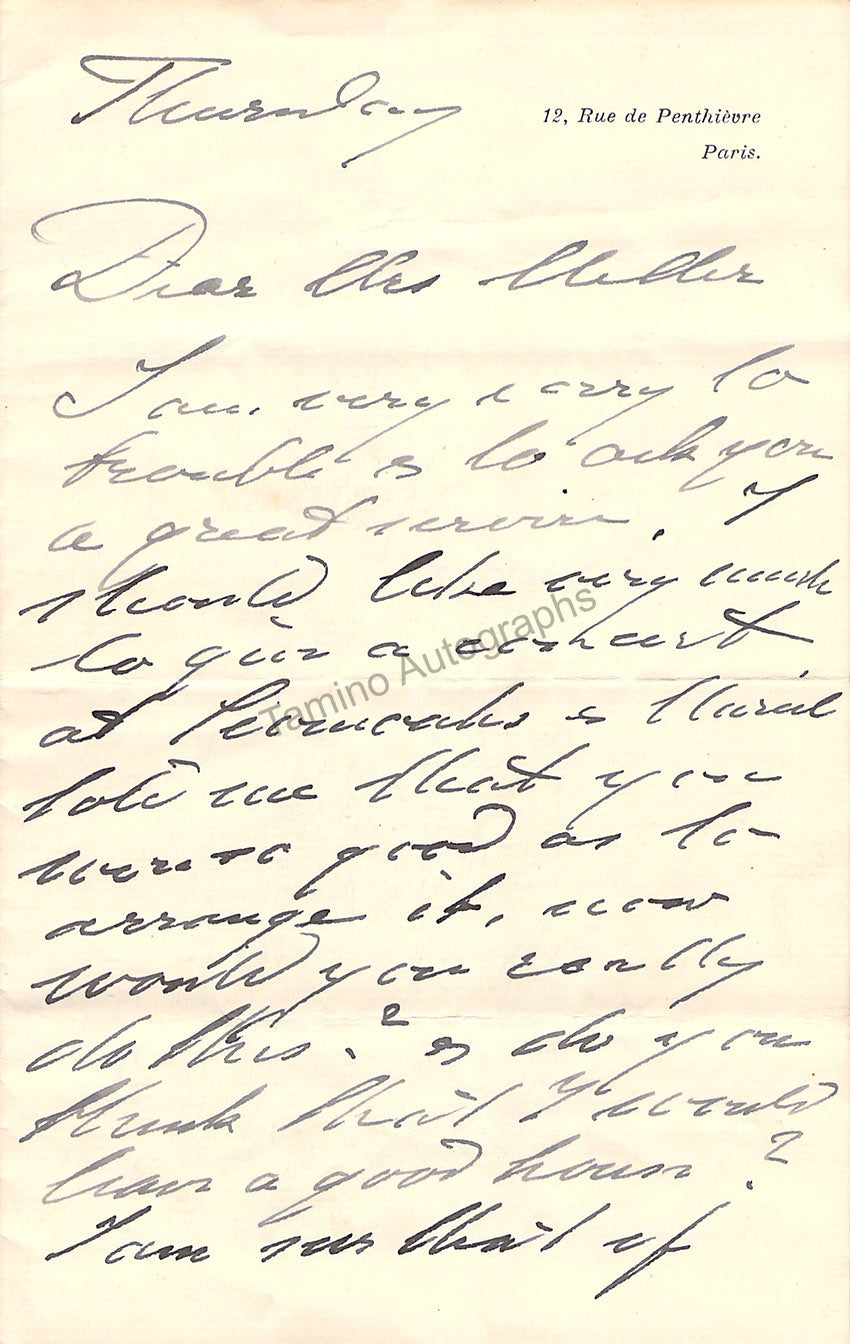 Thursday
12, Rue de Penthièvre
Paris.
Dear Mrs
I am very sorry to
trouble & to ask you
a great service. I
should like very much
to give a concert
at &
told me that you
were so good as to
arrange it, now
would you really
do this? & do you
think that I would
have a good house?
I am sure that if
Tamino Autographs